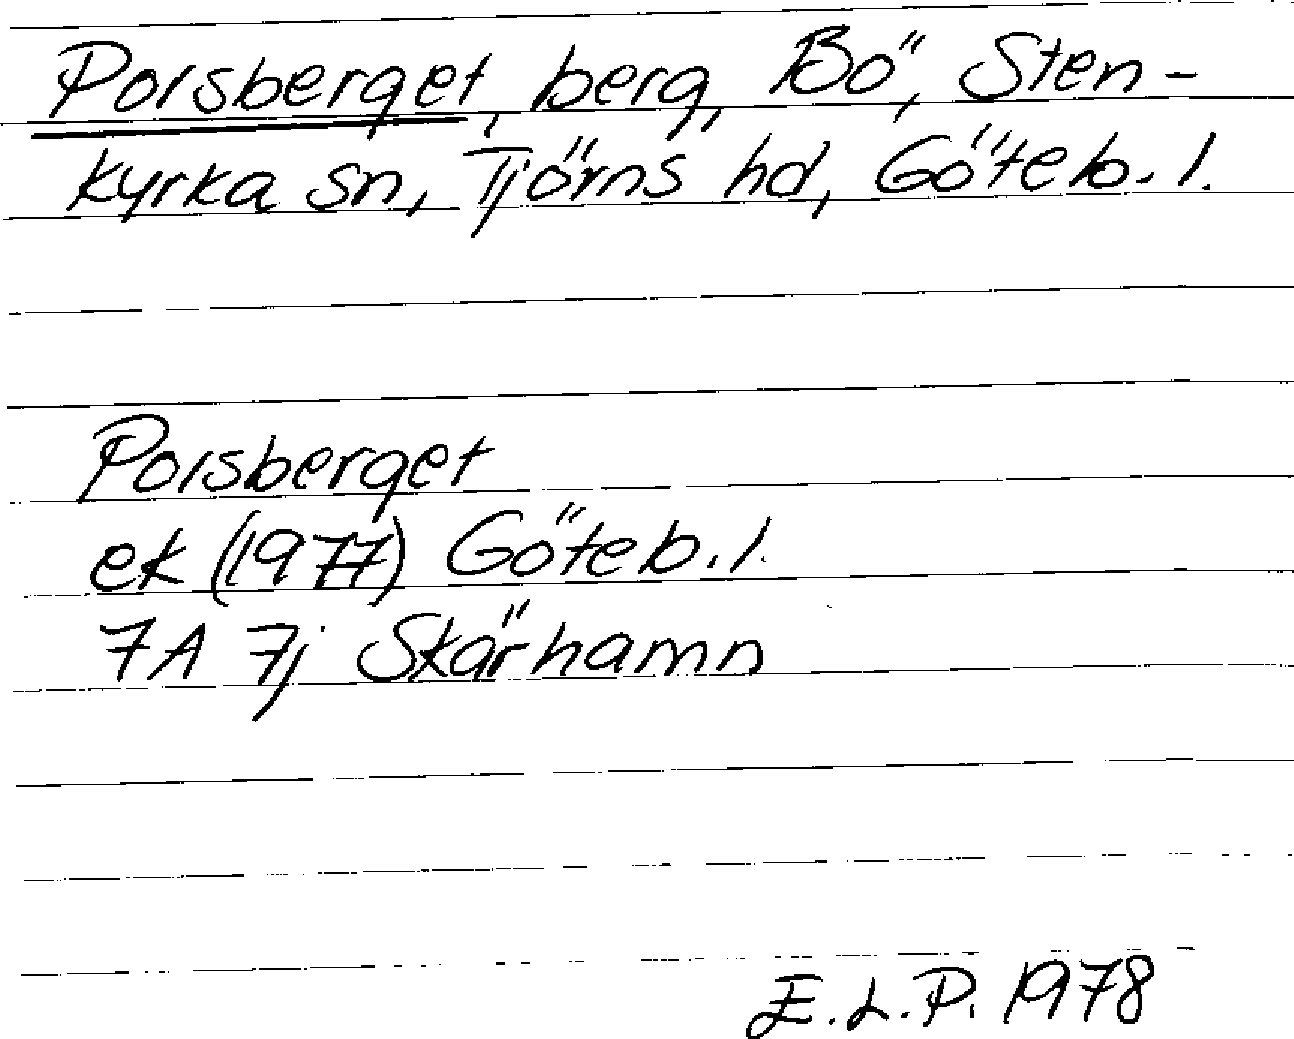 Porsberget, berg, Bö, Sten-
kyrka sn, Tjörns hd, Göteb. l.
Porsberget
ek (1977) Göteb. l.
7A 7j Skärhamn
E.L.P. 1978